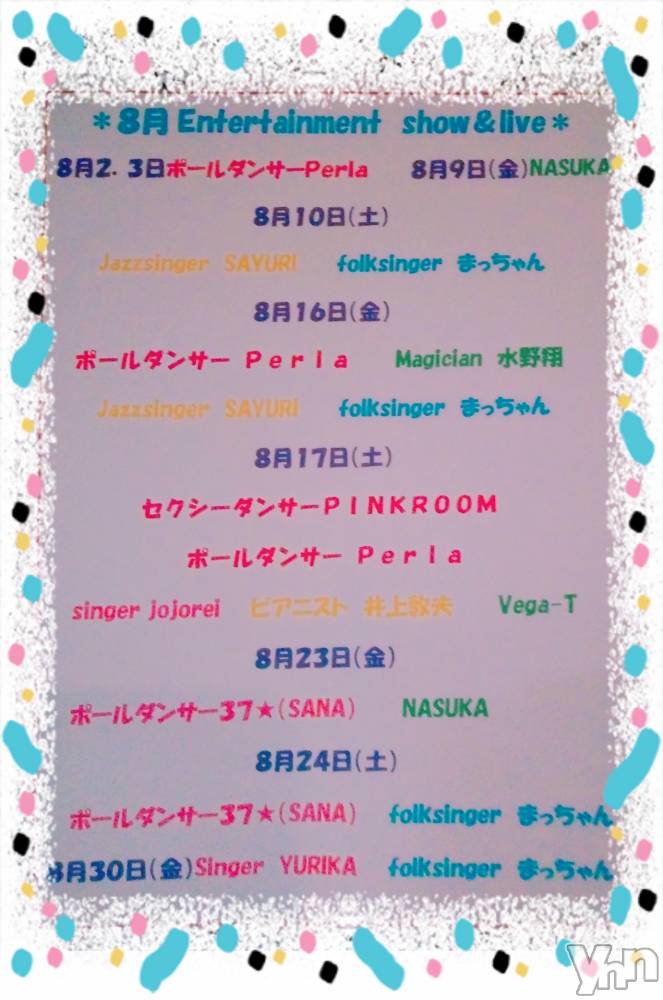 ＊8月 Entertainment show＆live＊
8月2．3日ポールダンサーPerla 8月9日(金)NASUKA
8月10日(土)
Jazzsinger SAYURI folksinger まっちゃん
8月16日(金)
ポールダンサー Perla Magician 水野翔
Jazzsinger SAYURI folksinger まっちゃん
8月17日(土)
セクシーダンサーPINKROOM
ポールダンサー Perla
singer jojorei ピアニスト 井上敦夫 Vega-T
8月23日(金)
ポールダンサー37★(SANA) NASUKA
8月24日(土)
ポールダンサー37★(SANA) folksinger まっちゃん
8月30日(金)Singer YURIKA folksinger まっちゃん
Ynn